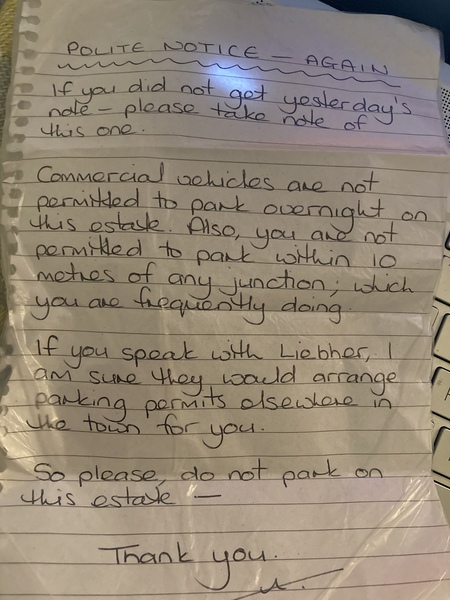 POLITE NOTICE – AGAIN
If you did not get yesterday's
note – please take note of
this one.
Commercial vehicles are not
permitted to park overnight on
this estate. Also, you are not
permitted to park within 10
metres of any junction; which
you are frequently doing.
If you speak with Liebher, I
am sure they would arrange
parking permits elsewhere in
the town for you.
So please, do not park on
this estate —
Thank you.